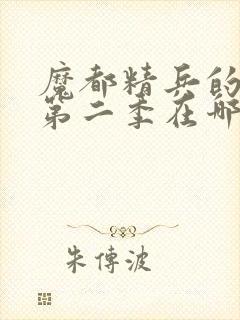 魔都精兵的
第二季在哪
朱傳波